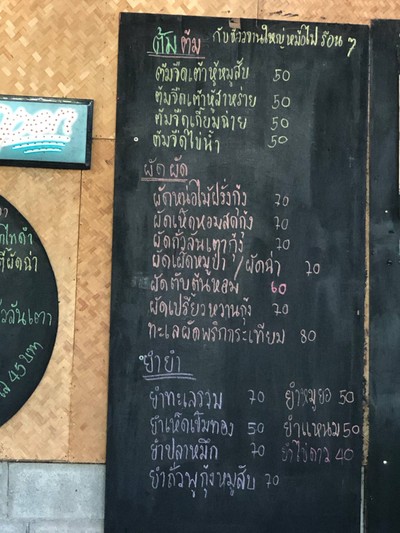 ต้มต้ม กับข้าวจานใหญ่หม้อไฟร้อนๆ
ต้มจืดเต้าหู้หมูสับ 50
ต้มจืดเต้าหู้สาหร่าย 50
ต้มจืดเกี้ยมฉ่าย 50
ต้มจืดไข่น้ำ 50
ผัดผัด
ผัดหน่อไม้ฝรั่งกุ้ง 70
ผัดเห็ดหอมสดกุ้ง 70
ผัดถั่วลันเตากุ้ง 70
ผัดเผ็ดหมูป่า / ผัดฉ่า 70
ผัดตับต้นหอม 60
ผัดเปรี้ยวหวานกุ้ง 70
ทะเลผัดพริกกระเทียม 80
ยำยำ
ยำทะเลรวม 70 ยำหมูยอ 50
ยำเห็ดเข็มทอง 50 ยำแหนม 50
ยำปลาหมึก 70 ยำไข่ดาว 40
ยำถั่วพูกุ้งหมูสับ 70